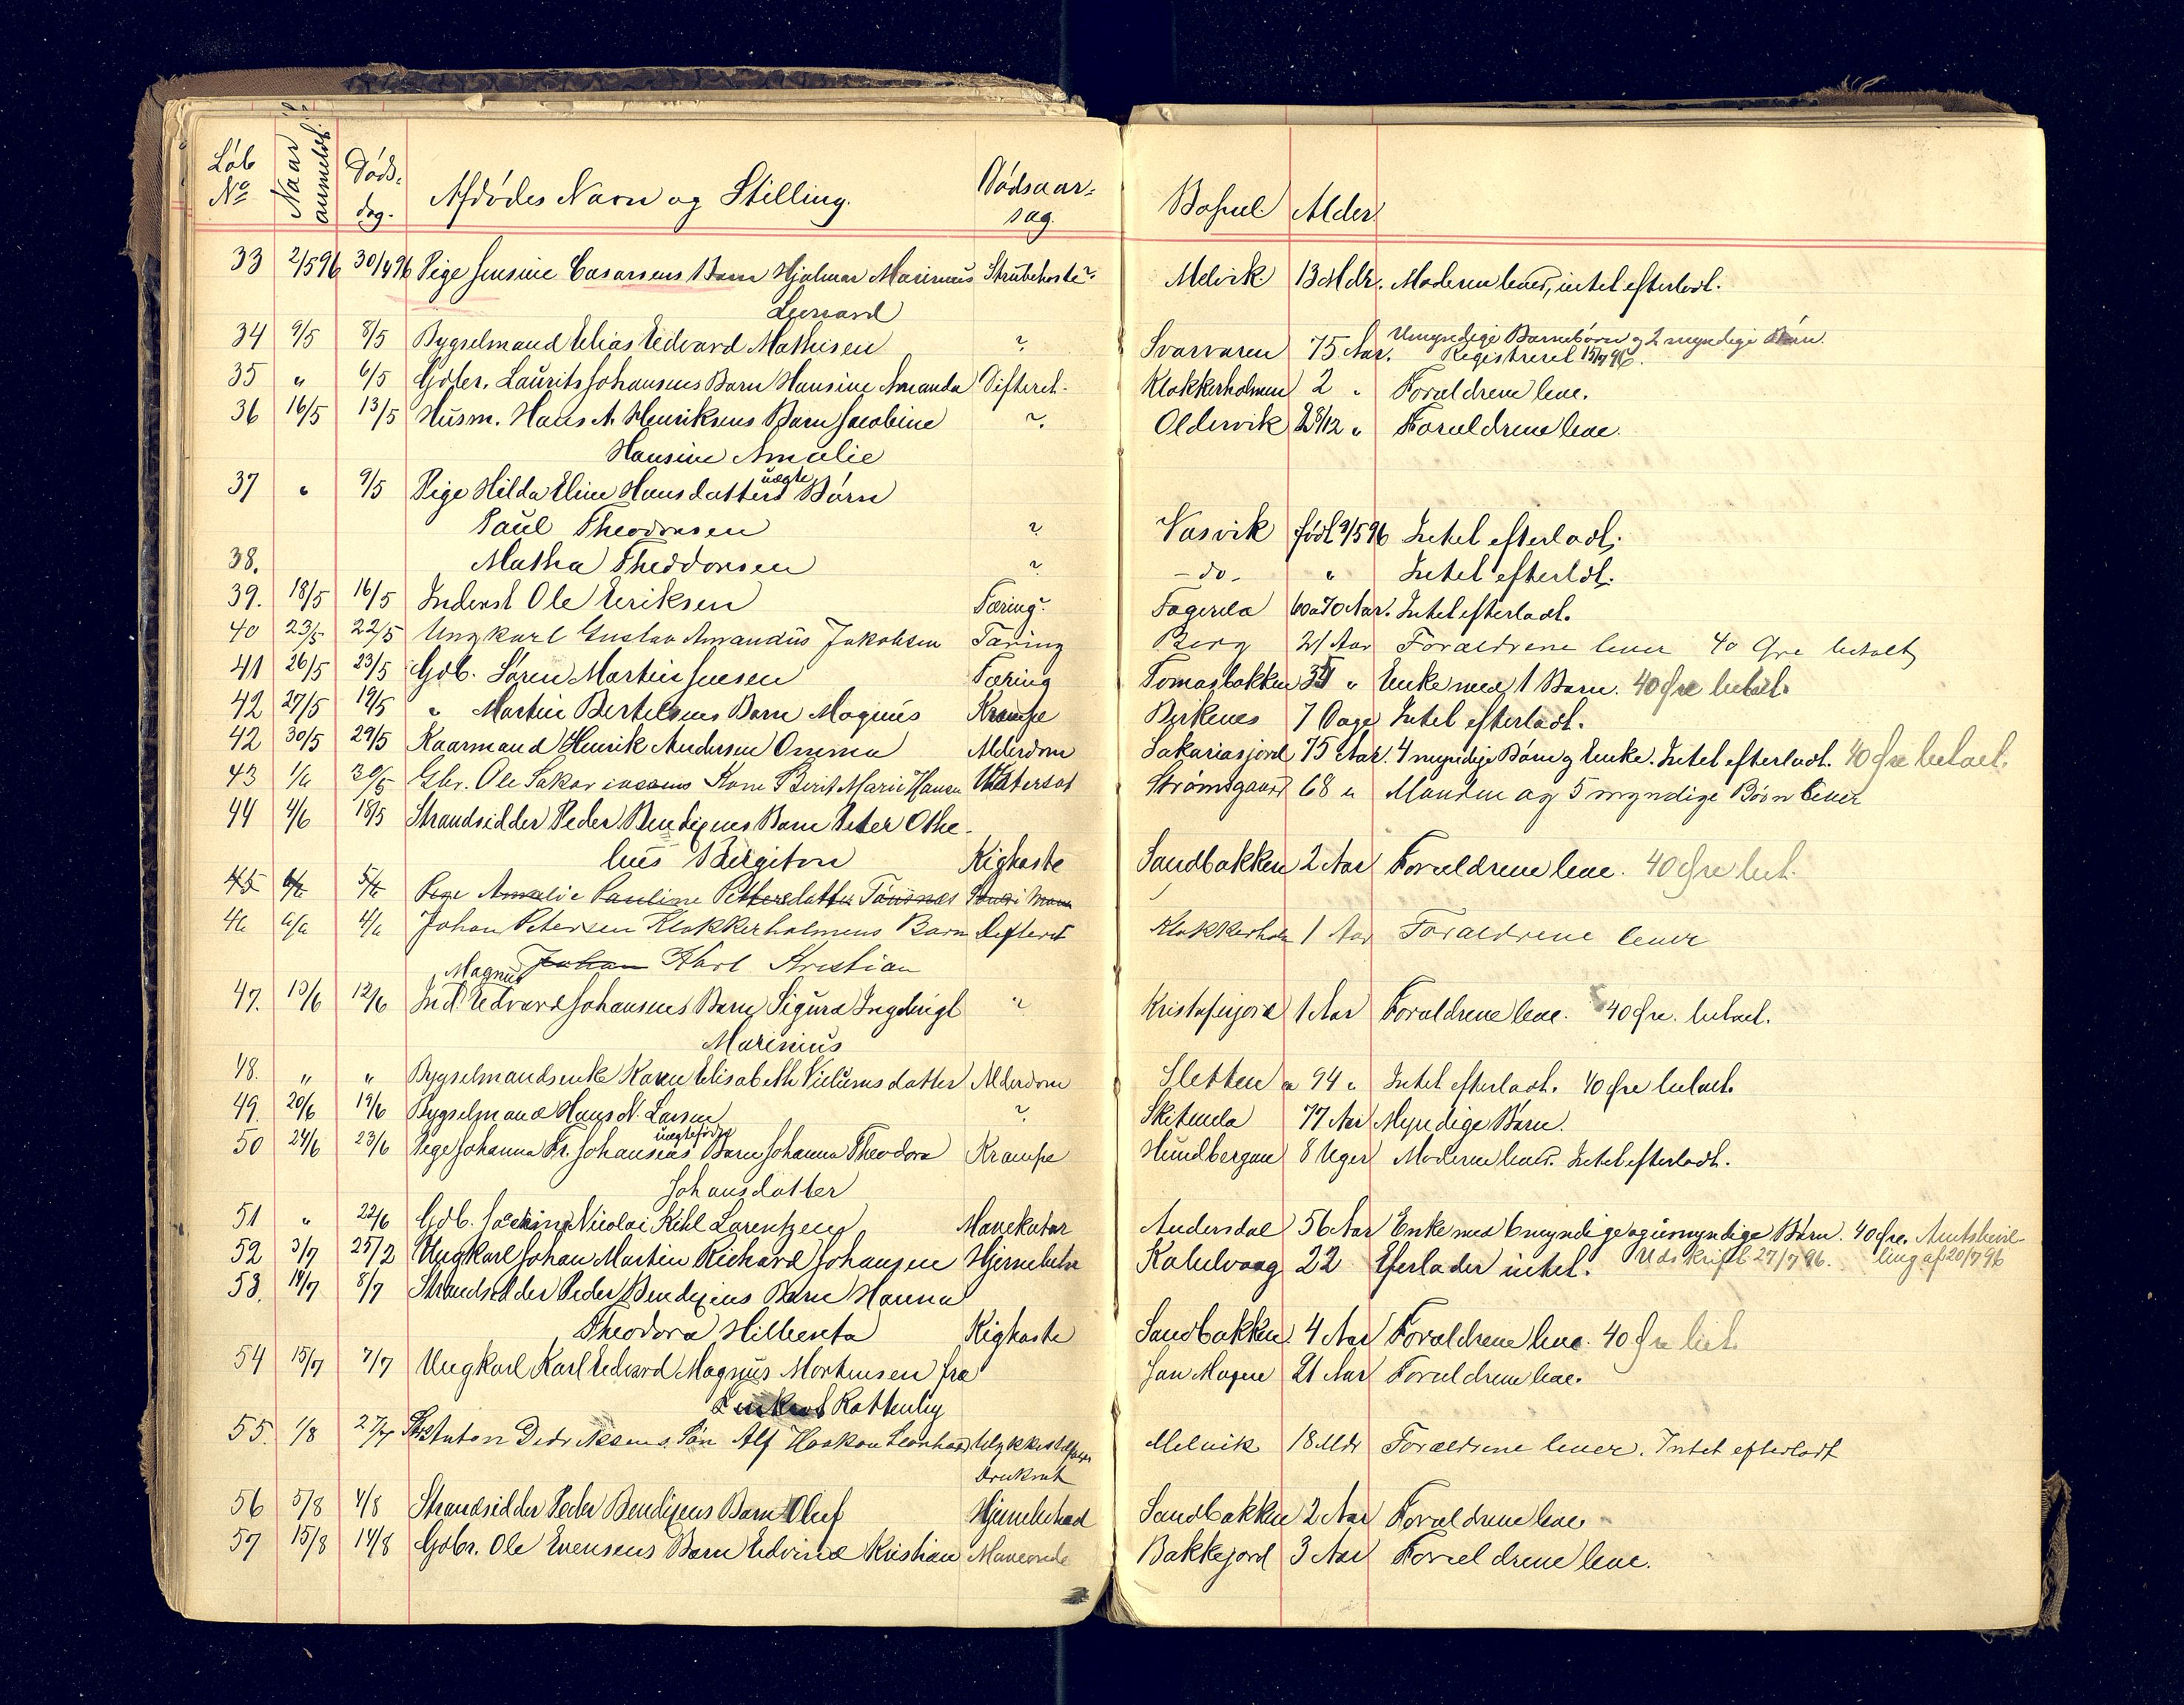 Løb No Naar anmeldt. Døds- dag. Afdødes Navn og Stilling. Dødsaar- sag. Bopæl. Alder.
33 2/5 96 30/4 96 Pige Jensine Casarsens Barn Hjalmar Marinius Strubehoste? Melvik 13 Mdr. Moderen lever, intet efterladt.
34 9/5 8/5 Bygselmand Elias Edvard Mathisen ? Svarvaren 75 Aar. Umyndige Barnebørn og 2 myndige Børn.
Registreret 15/7 96.
35 " 6/5 Gdbr. Laurits Johansens Barn Hansine Amanda Difterit. Klokkerholmen 2 " Forældrene leve.
36 16/5 13/5 Husm. Hans A. Henriksens Barn Jacobine ?. Oldervik 2 8/12 " Forældrene leve.
Hansine Amalie
37 " 9/5 Pige Hilda Eline Hansdatters uægte Børn
Paul Theodorsen ? Vasvik født 9/5 96 Intet efterladt.
38. Matha Theodorsen ? - do - " Intet efterladt.
39. 18/5 16/5 Inderst Ole Eriksen Tæring? Fagerela 60 a 70 Aar. Intet efterladt.
40 23/5 22/5 Ungkarl Gustav Amandus Jakobsen Tæring Berg 21 Aar Forældrene lever 40 Øre betalt
41 26/5 23/5 Gdb. Søren Martin Jensen Tæring Tomasbakken " Enke med 1 Barn. 40 Øre betalt.
42 27/5 19/5 " Martin Bertelsens Barn Magnus Krampe Birkenes 7 Dage Intet efterladt.
42 30/5 29/5 Kaarmand Henrik Andersen Omma Alderdom Sakariasjord 75 Aar. 4 myndige Børn og Enke. Intet efterladt. 40 Øre betalt.
43 1/6 30/5 Gbr. Ole Sakariasens Kone Berit Marie Hansen Vatersot Strømsgaard 68 " Manden og 5 myndige Børn lever
44 4/6 18/5 Strandsidder Peder Bendixens Barn Peter Othe-
lius Birgiton Kighoste Sandbakken 2 Aar Forældrene leve. 40 Øre bet.
45 6/6 5/6 Pige Amalie Pauline Pettersdatter
46 6/6 4/6 Johan Petersen Klokkerholmens Barn Difterit Klokkerholm 1 Aar Forældrene lever
Magnus Johan Karl Kristian
47. 13/6 12/6 Ind. Edvard Johansens Barn Sigurd Ingebrigt " Kristofferjord 1 Aar Forældrene leve. 40 Øre. betalt.
Marinius
48. " " Bygselmandsenke Karen Elisabeth Villumsdatter Alderdom Sletten 94 " Intet efterladt. 40 Øre betalt.
49. 20/6 19/6 Bygselmand Hans N. Larsen ? Skitenela 77 Aar Myndige Børn.
50 24/6 23/6 Pige Johanna Fr. Johansens uægtefødte Barn Johanna Theodora Krampe Hundbergan 8 Uger Moderen lever. Intet efterladt.
Johansdatter
51 " 22/6 Gdb. Joachim Nicolai Kihl Lorentzen Mavekatar Andersdal 56 Aar Enke med 6 myndige og umyndige Børn. 40 Øre. Amtsbevil-
ling af 20/7 96
52 3/7 25/2 Ungkarl Johan Martin Rickard Johansen Hjernebetæ Kalvelvaag 22 Eferlader intet. Udskrift 27/7 96.
53. 14/7 8/7 Strandsidder Peder Bendixens Barn Hanna
Theodora Kighoste Sandbakken. 4 Aar Forældrene leve. 40 Øre bet.
54 15/7 7/7 Ungkarl Karl Edvard Magnus Mortensen fra Jan Mayen 21 Aar Forældrene leve.
Kattenby
55. 1/8 27/7 Anton Didriksens Søn Alf Haakon Leonhard Ulykkestilfælde Melvik 18 Mdr Forældrene lever. Intet efterladt
Druknet
56 5/8 4/8 Strandsidder Peder Bendixens Barn Oluf Sandbakken 2 Aar Forældrene leve
57 15/8 14/8 Gdbr. Ole Evensens Barn Edvind Kristian Maveonde Bakkejord 3 Aar Forældrene leve.